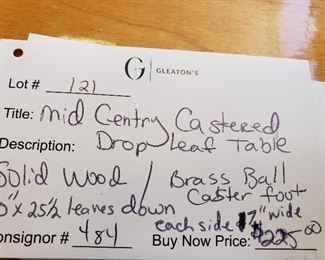 G | GLEATON'S
Lot # 121
Title: Mid Centry Castered
Description: Drop Leaf Table
Solid Wood / Brass Ball
Caster foot
0" x 25½ leaves down each side 17" wide
onsignor # 484 Buy Now Price: $225.00